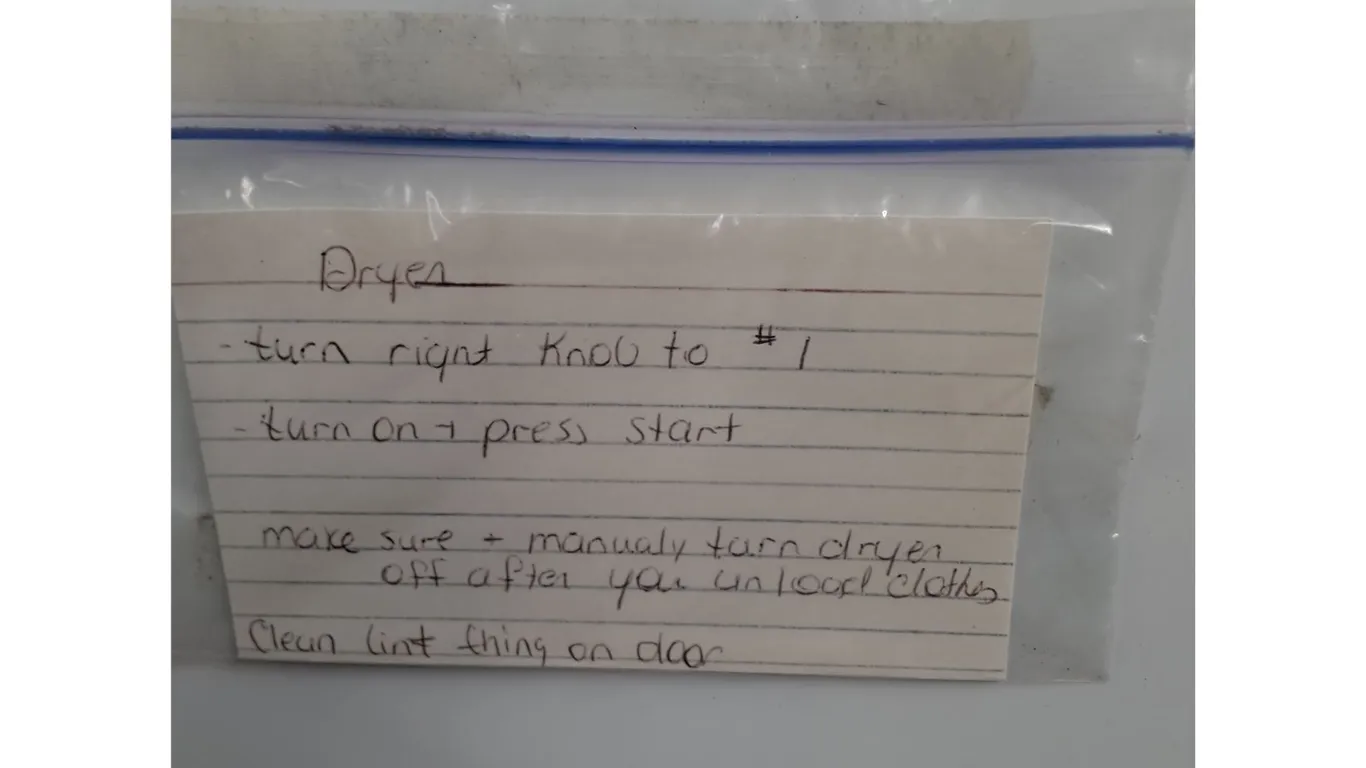 Dryer
- turn right knob to #1
- turn on + press start
make sure + manualy turn dryer
off after you unload clothes
Clean lint thing on door